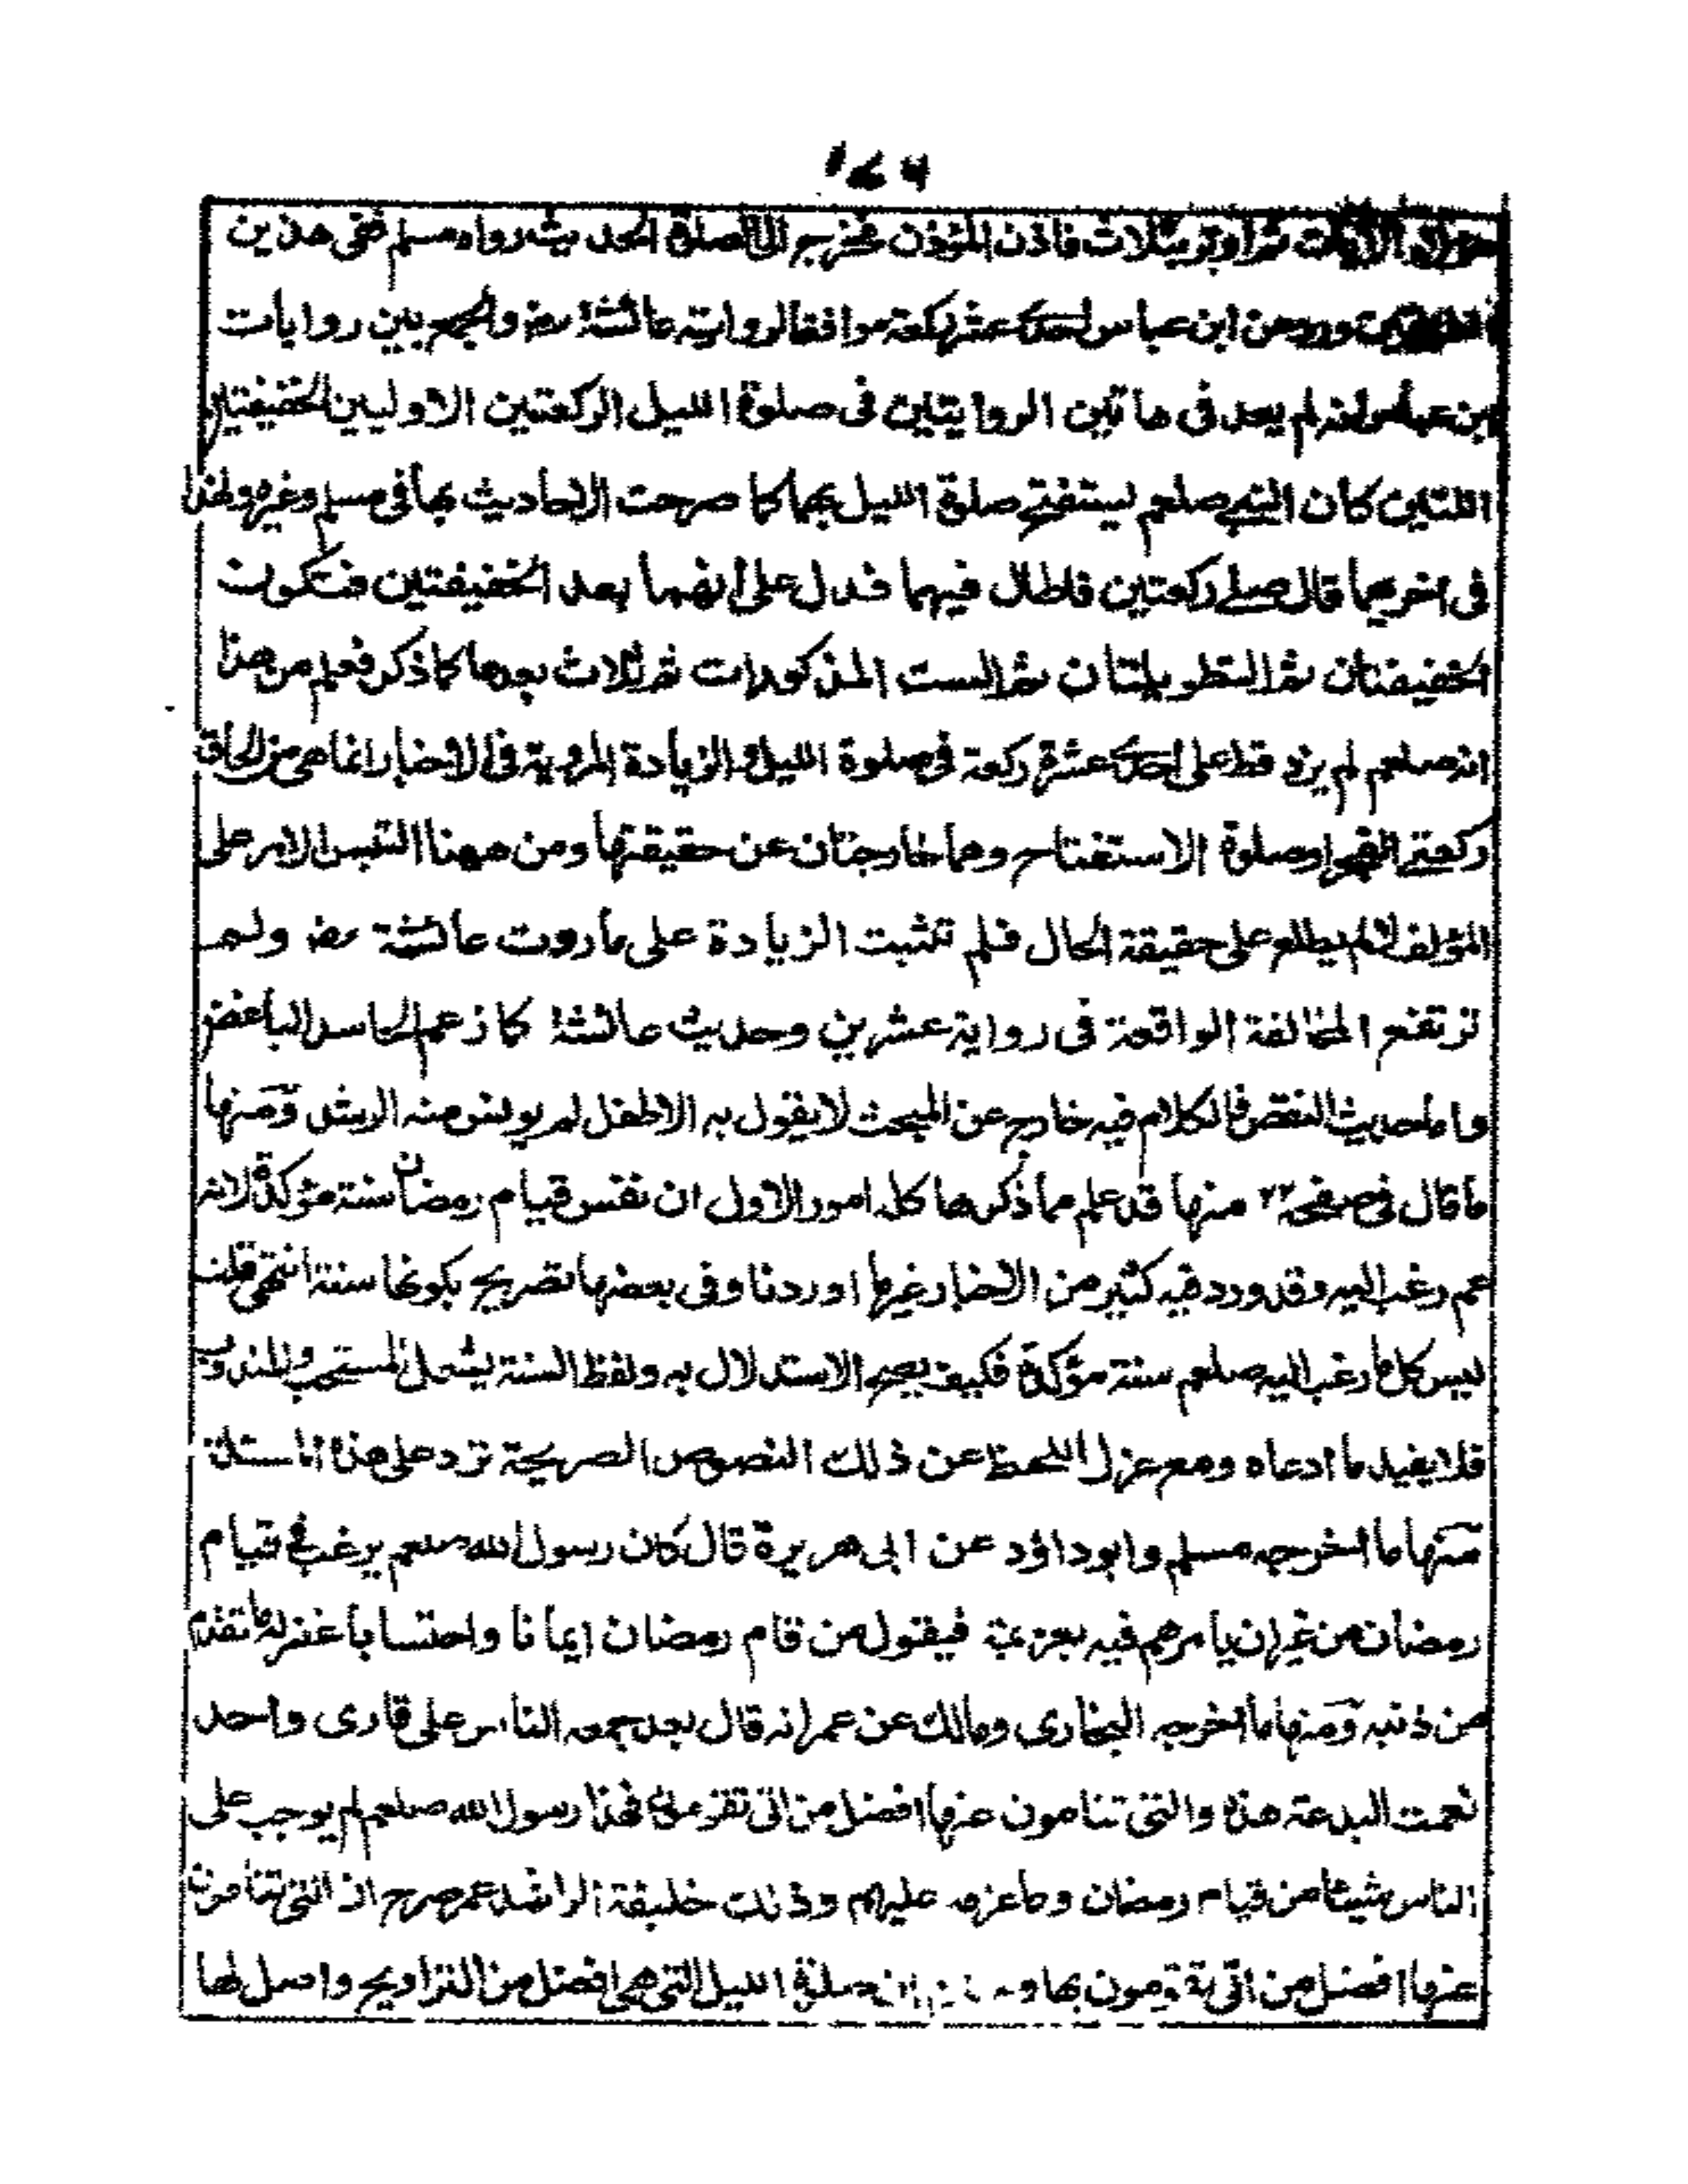 ۱۷۶
الآيات ثم اوتر بثلاث فاذن المؤذن فخرج الى الصلوة الحديث رواه مسلم ففى هذين
ورد عن ابن عباس احدى عشر ركعة موافقا لرواية عائشة رض والجمع بين روايات
ابن عباس انه لم يعد فى هاتين الروايتين فى صلوة الليل الركعتين الاوليين الخفيفتين
اللتين كان النبى صلعم يستفتح صلوة الليل بهما كما صرحت الاحاديث بها فى مسلم وغيره ولهذا
فى اخريهما قال صلى ركعتين فاطال فيهما فدل على انهما بعد الخفيفتين فتكون
الخفيفتان ثم الطويلتان ثم الست المذكورات ثم ثلاث بعدها كما ذكر فعلم من هذا
انه صلعم لم يزد قط على احدى عشرة ركعة فى صلوة الليل والزيادة المروية فى الاخبار انما هى من الحاق
ركعتى الفجر او صلوة الاستفتاح وهما خارجتان عن حقيقتها ومن ههنا التبس الامر على
المؤلف اذ لم يطلع على حقيقة الحال فلم تثبت الزيادة على ما روت عائشة رض ولم
ترتفع المخالفة الواقعة فى رواية عشرين وحديث عائشة كما زعم الحاسد الباغض
واما حديث النقض فالكلام فيه خارج عن المبحث لا يقول به الا طفل لم يونس منه الرشد ومنها
ما قال فى صفحة ۲۲ منها قد علم مما ذكرها كله امور الاول ان نفس قيام رمضان سنة مؤكدة لانه
عم رغب اليه وقد ورد فيه كثير من الاخبار غيرما اوردنا وفى بعضها تصريح بكونها سنة انتهى قلت
ليس كل ما رغب اليه صلعم سنة مؤكدة فكيف يصح الاستدلال به ولفظ السنة يشمل المستحب والمندوب
فلا يفيد ما ادعاه ومع عزل اللحظ عن ذلك النصوص الصريحة ترد على هذا
منها ما اخرجه مسلم وابوداؤد عن ابى هريرة قال كان رسول الله صلعم يرغب فى قيام
رمضان من غير ان يامرهم فيه بعزيمة فيقول من قام رمضان ايمانا واحتسابا غفر له ما تقدم
من ذنبه ومنها ما اخرجه البخارى ومالك عن عمر انه قال بعد جمعه الناس على قارى واحد
نعمت البدعة هذه والتى تنامون عنها افضل من التى تقومون فهذا رسول الله صلعم لم يوجب على
الناس شيئا من قيام رمضان وما عزمه عليهم وذلك خليفة الراشد عمر صرح ان التى تنامون
عنها افضل من التى تقومون بها صلوة الليل التى هى افضل من التراويح واصل لها